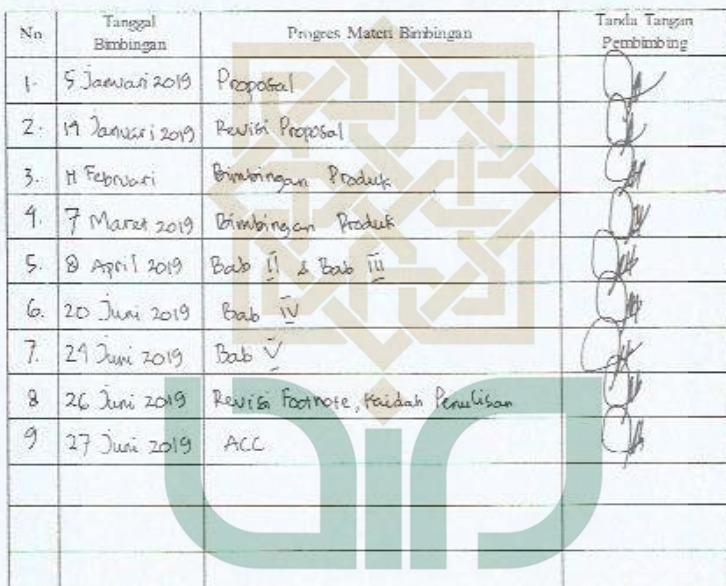 No Tanggal Bimbingan Progres Materi Bimbingan Tanda Tangan Pembimbing
1. 5 Januari 2019 Proposal
2. 19 Januari 2019 Revisi Proposal
3. Februari Bimbingan Produk
4. 7 Maret 2019 Bimbingan Produk
5. 8 April 2019 Bab II & Bab III
6. 20 Juni 2019 Bab IV
7. 24 Juni 2019 Bab V
8 26 Juni 2019 Revisi Footnote, Kaidah Penulisan
9 27 Juni 2019 ACC